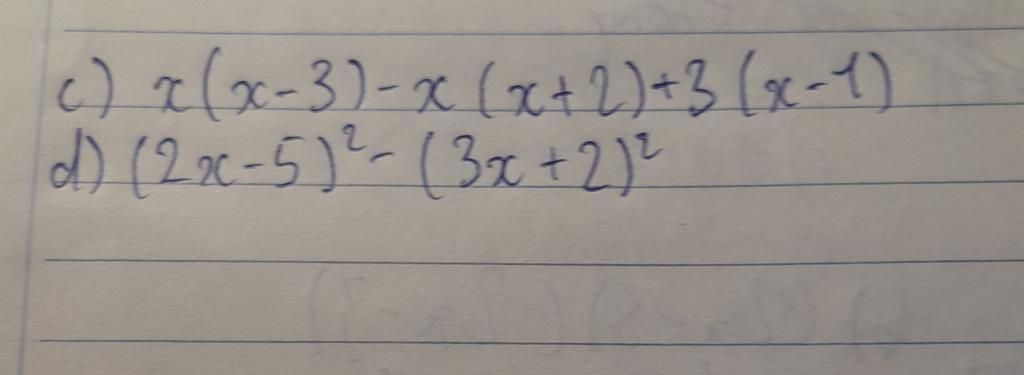 c) x(x-3)-x(x+2)+3(x-1)
d) (2x-5)²-(3x+2)²